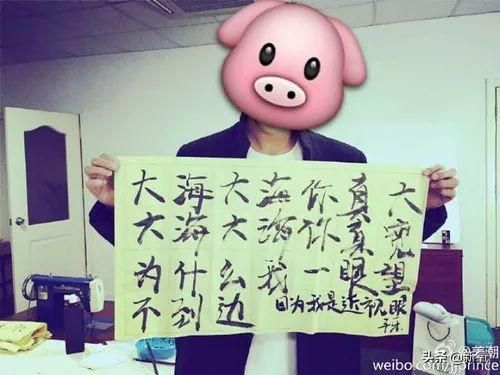 大海大海你真大
大海大海你真宽
为什么我一眼望
不到边
因为我是近视眼
weibo.com/jjprince
头条